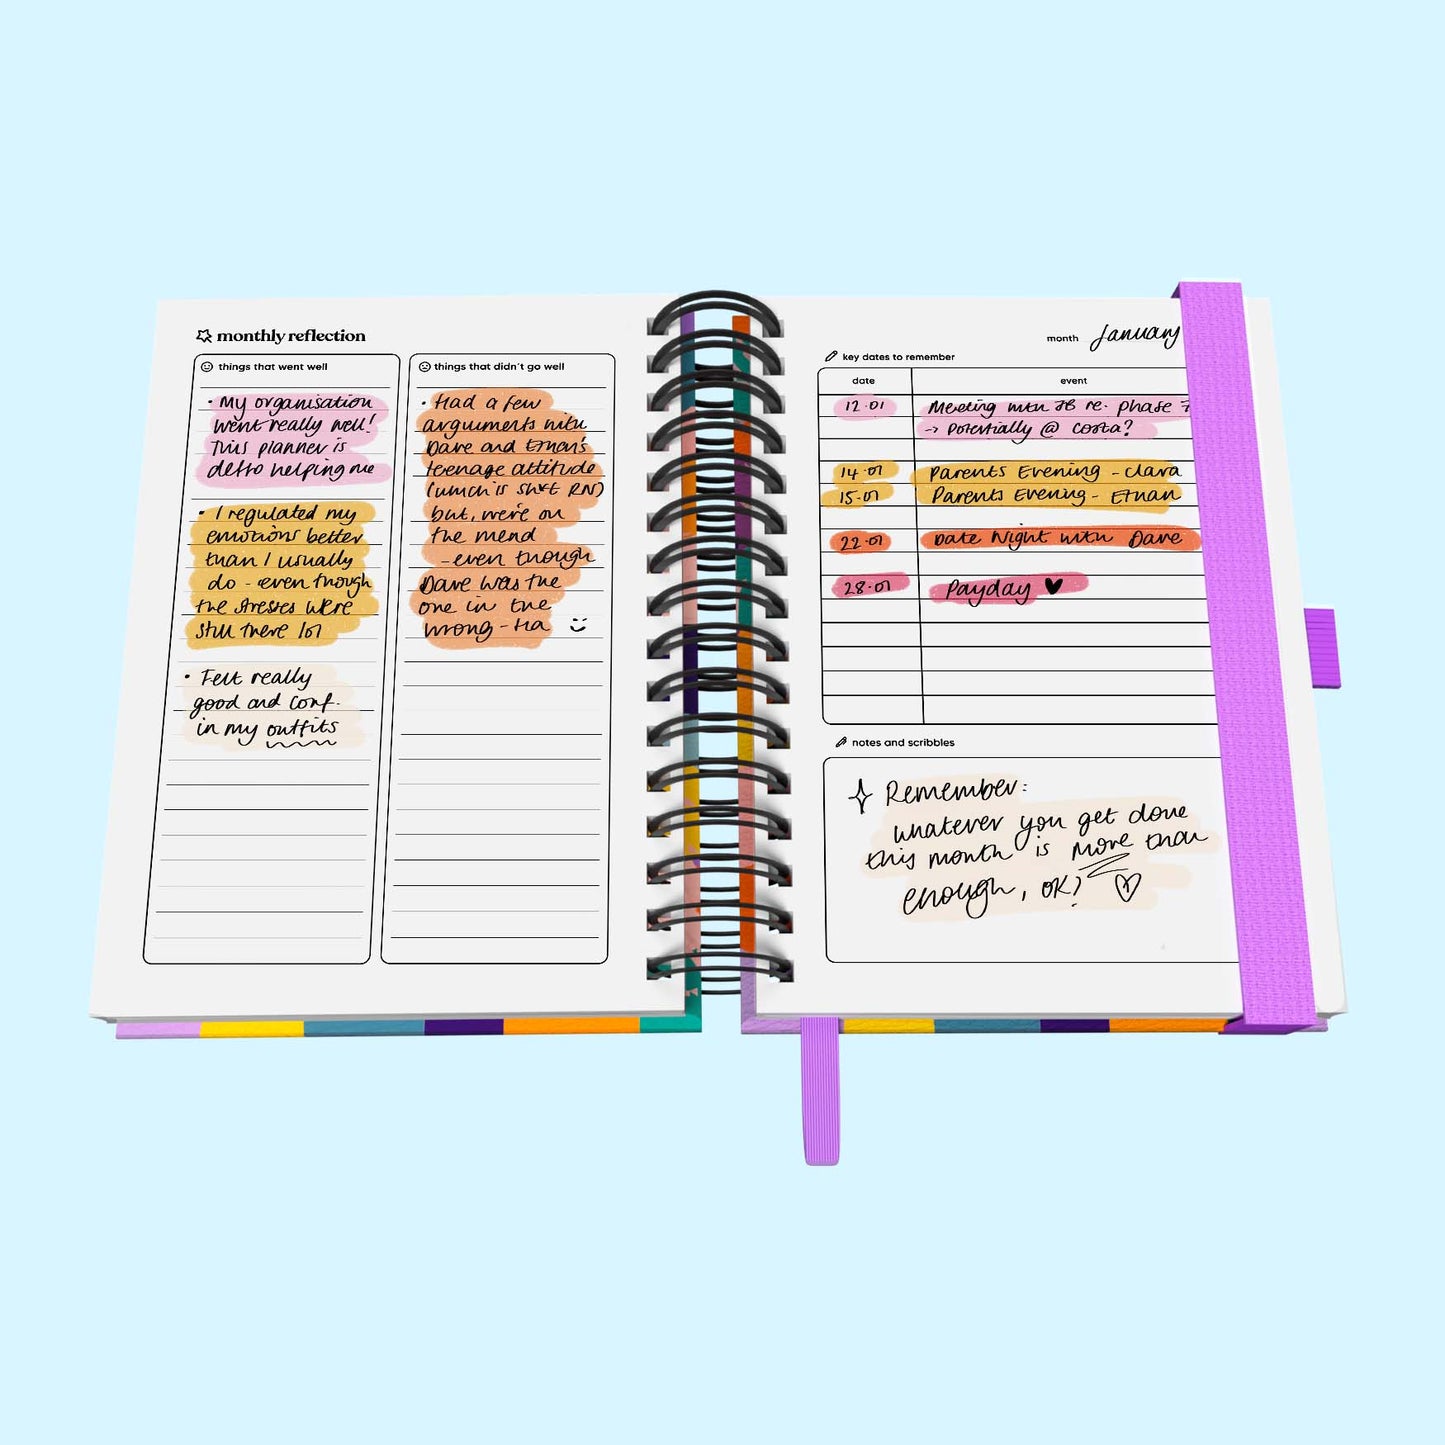 monthly reflection
things that went well
• My organisation
went really well!
This planner is
defto helping me
• I regulated my
emotions better
than I usually
do - even though
the stresses were
still there lol
• Felt really
good and conf.
in my outfits
things that didn't go well
• Had a few
arguments with
Dave and Ethan's
teenage attitude
(which is sh*t RN)
but, we're on
the mend
- even though
Dave was the
one in the
wrong - Ha
month January
key dates to remember
date event
12.01 Meeting with JB re. phase
-> Potentially @ Costa?
14.01 Parents Evening - Clara
15.01 Parents Evening - Ethan
22.01 Date Night with Dave
28.01 Payday ♥
notes and scribbles
Remember:
whatever you get done
this month is more than
enough, OK? ♡